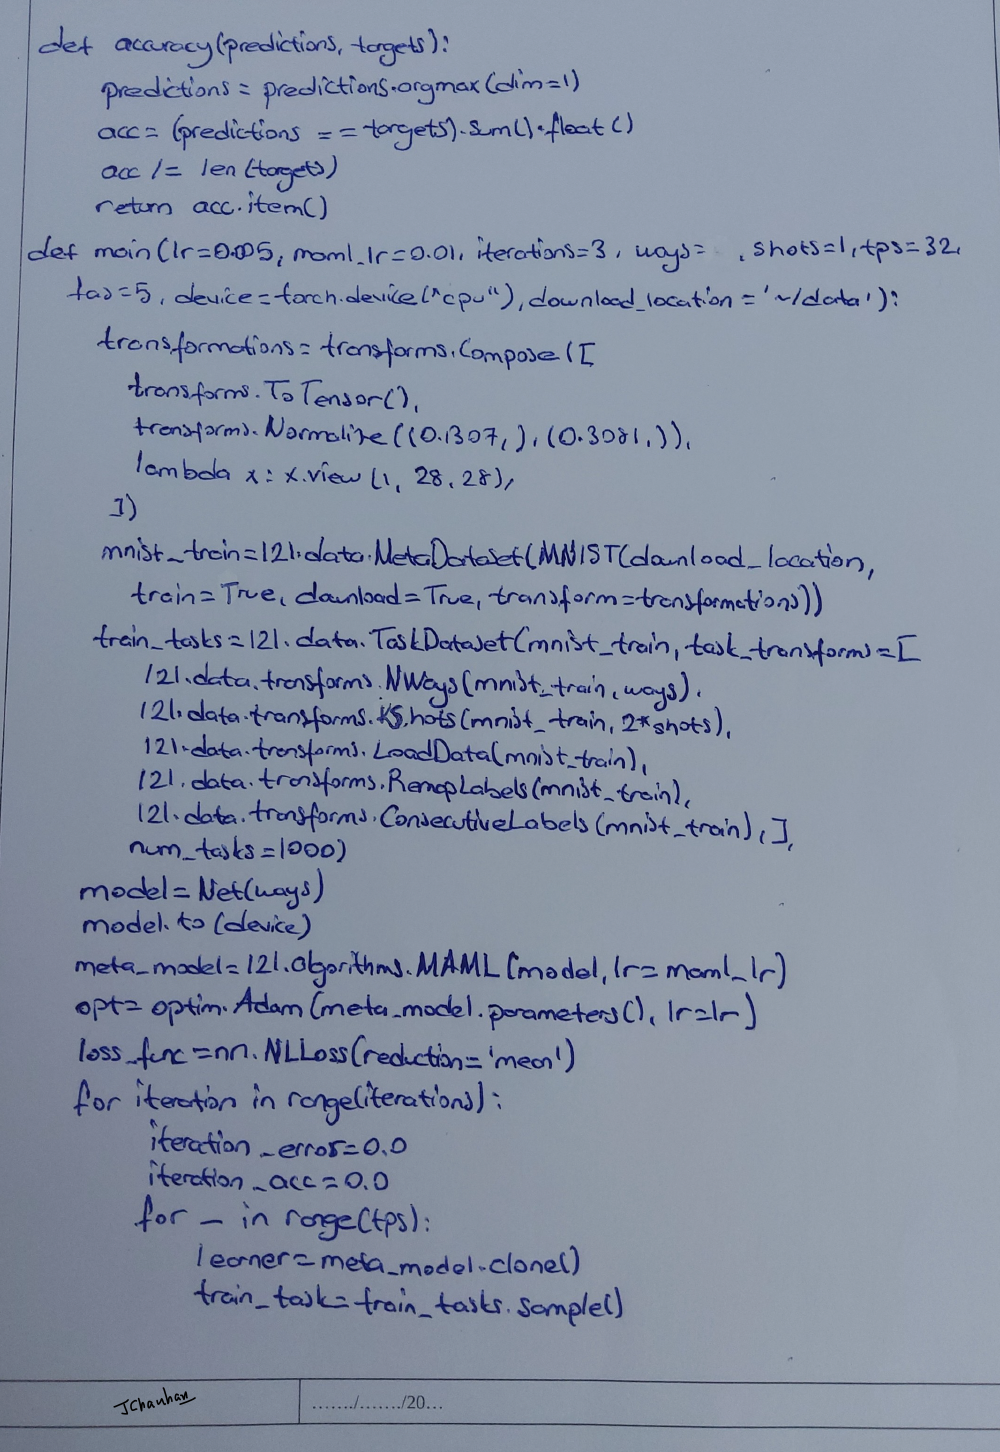 def accuracy(predictions, targets):
predictions = predictions.argmax(dim=1)
acc = (predictions == targets).sum().float()
acc /= len(targets)
return acc.item()
def main(lr=0.005, maml_lr=0.01, iterations=3, ways= , shots=1, tps=32,
fas=5, device=torch.device("cpu"), download_location='~/data'):
transformations = transforms.Compose([
transforms.ToTensor(),
transforms.Normalize((0.1307,), (0.3081,)),
lambda x: x.view(1, 28, 28),
])
mnist_train=l2l.data.MetaDataset(MNIST(download_location,
train=True, download=True, transform=transformations))
train_tasks=l2l.data.TaskDataset(mnist_train, task_transforms=[
l2l.data.transforms.NWays(mnist_train, ways),
l2l.data.transforms.KShots(mnist_train, 2*shots),
l2l.data.transforms.LoadData(mnist_train),
l2l.data.transforms.RemapLabels(mnist_train),
l2l.data.transforms.ConsecutiveLabels(mnist_train),],
num_tasks=1000)
model = Net(ways)
model.to(device)
meta_model=l2l.algorithms.MAML(model, lr=maml_lr)
opt= optim.Adam(meta_model.parameters(), lr=lr)
loss_func =nn.NLLoss(reduction='mean')
for iteration in range(iterations):
iteration_error=0.0
iteration_acc=0.0
for _ in range(tps):
learner=meta_model.clone()
train_task=train_tasks.sample()
JChauhan
......./......./20...